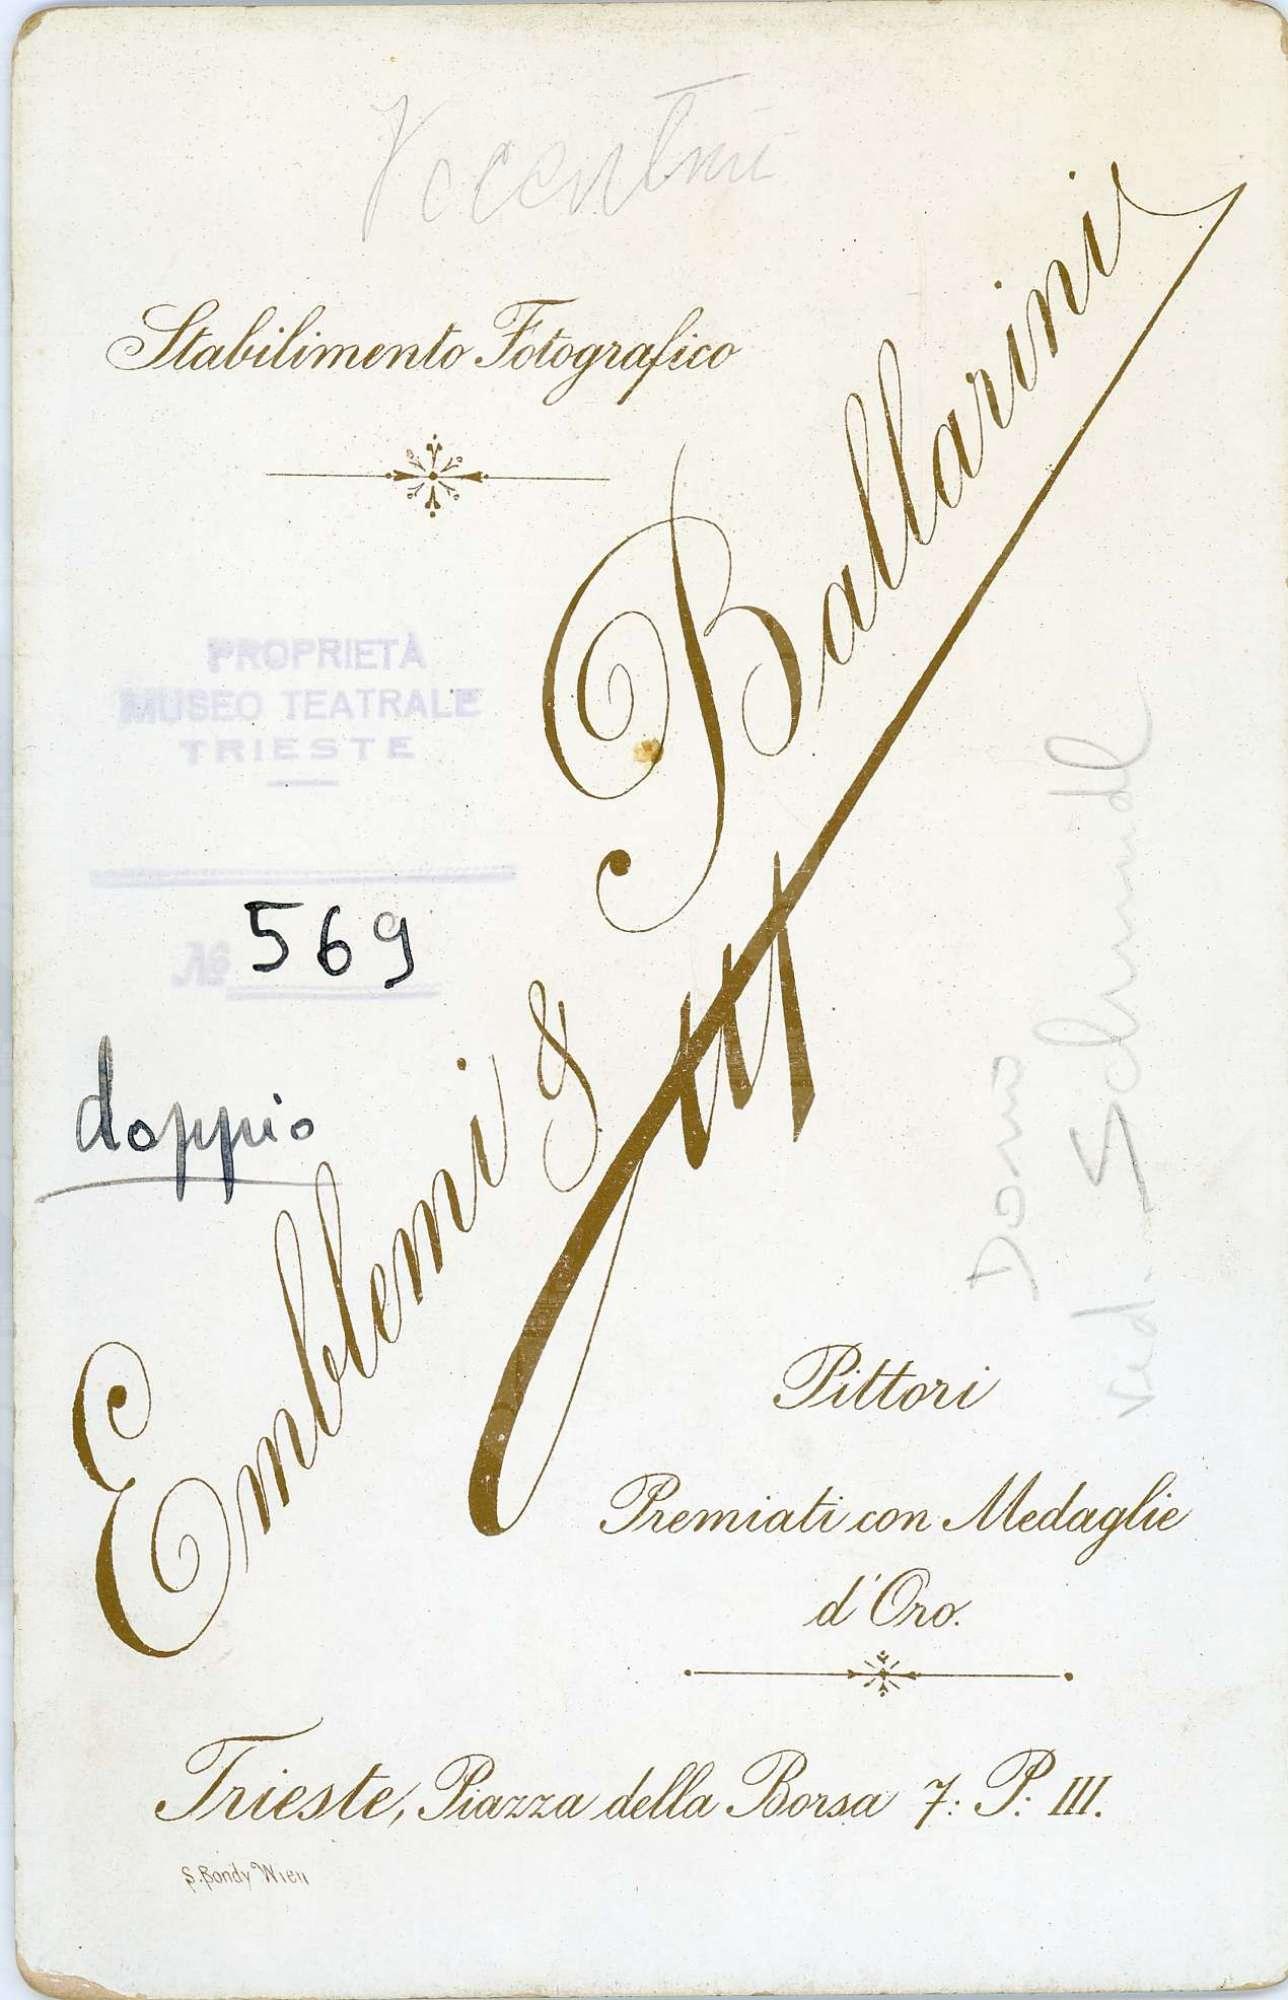 Stabilimento Fotografico
PROPRIETÀ
MUSEO TEATRALE
TRIESTE
№ 569
doppio
Emblemi & Ballarini
Dono
ved. Schmidl
Pittori
Premiati con Medaglie
d'Oro.
Trieste, Piazza della Borsa 7: P: III.
S. Bondy Wien